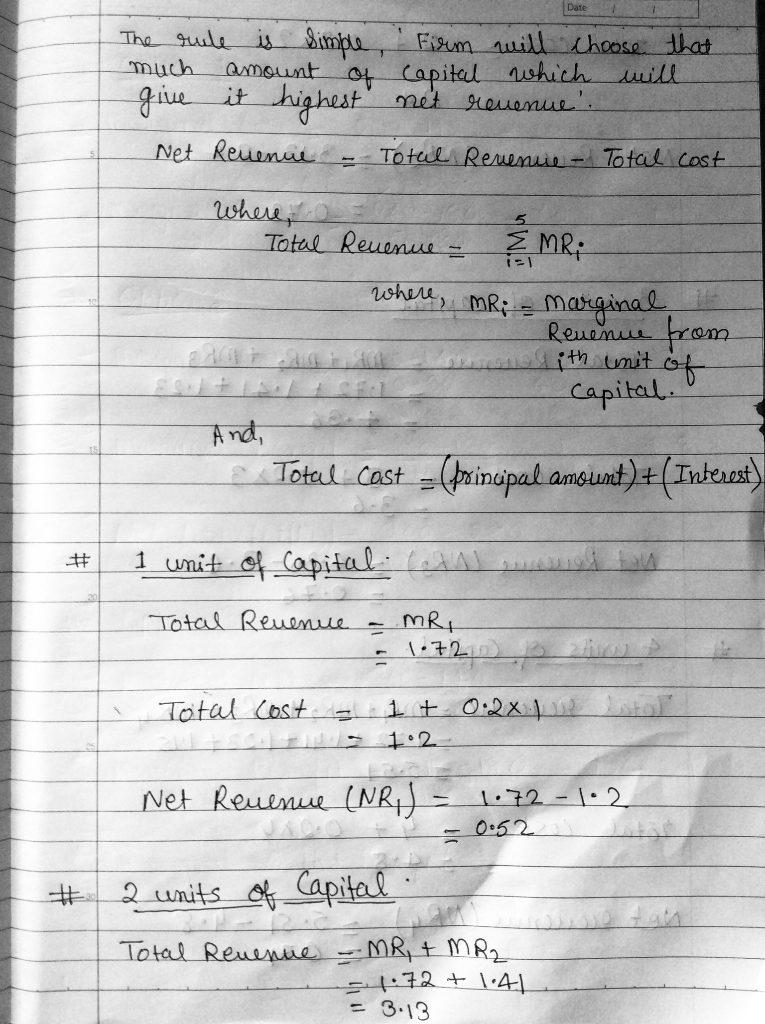 Date / /
The rule is simple, 'Firm will choose that
much amount of capital which will
give it highest net revenue'.
Net Revenue = Total Revenue - Total cost
where,
Total Revenue = 5 Σ i=1 MRi
where, MRi = Marginal
Revenue from
ith unit of
capital.
And,
Total Cost = (principal amount) + (Interest)
# 1 unit of Capital.
Total Revenue = MR1
= 1.72
Total Cost = 1 + 0.2x1
= 1.2
Net Revenue (NR1) = 1.72 - 1.2
= 0.52
# 2 units of Capital.
Total Revenue = MR1 + MR2
= 1.72 + 1.41
= 3.13